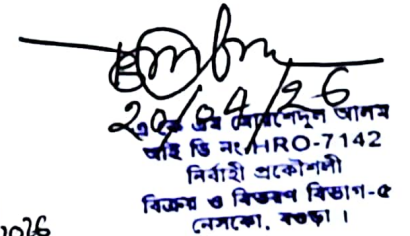 20/04/26
এ কে এম মোয়াজ্জেদুল আলম
আই ডি নং HRO-7142
নির্বাহী প্রকৌশলী
বিক্রয় ও বিতরণ বিভাগ-৫
নেসকো, বগুড়া।
2026